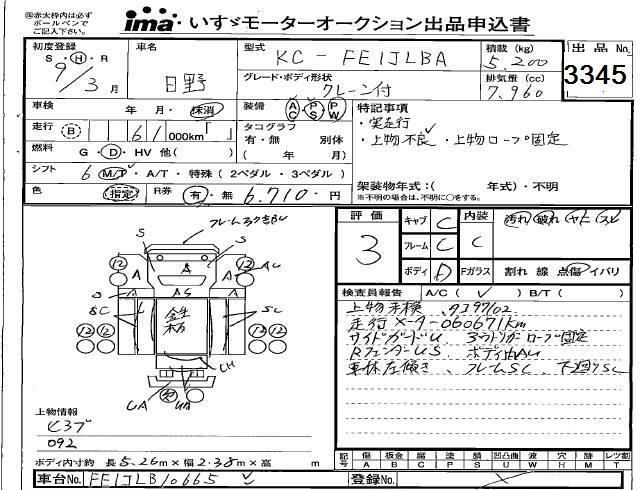 ⑱赤太枠内は必ず
ボールペンで
ご記入下さい。
ima いすゞモーターオークション出品申込書
初度登録
S・H・R
9/3月
車名
日野
型式
KC-FE1JLBA
グレード・ボディ形状
クレーン付
積載(kg)
5,200
排気量(cc)
7,960
出品No.
3345
車検 年 月・抹消
装備 AC・PS・PW
特記事項
・実走行
・上物不良 ・上物ロープ固定
走行 B 61 000km「 」
タコグラフ
有・無 別体
( 年 月)
燃料 G・D・HV 他( )
シフト 6 M/T・A/T・特殊(2ペダル・3ペダル)
架装物年式:( 年式)・不明
※不明の場合は、不明に○をする。
色 指定
R券 有・無 6,710-円
評価
3
キャブ C
フレーム C
ボディ D
内装
C
汚れ 破れ ヤニ スレ
Fガラス 割れ 線 点傷 イバリ
検査員報告 A/C( ✓ ) B/T( )
上物未検
走行メーター060671km
サイドガードU ロープ固定
RフェンダーUS
車体左傾き、フレームSC、下廻りSC
S S
12 12
A A A
AU
S A AS A
SC SC
12 12
UH
UA UA
上物情報
092
ボディ内寸約 長5.26m×幅2.38m×高 m
記号 傷A 板金B 腐C 塗P 錆S 凹U 凸凹曲B 波W 穴H 跡M レツ割T
車台No. FE1JLB10665
登録No.